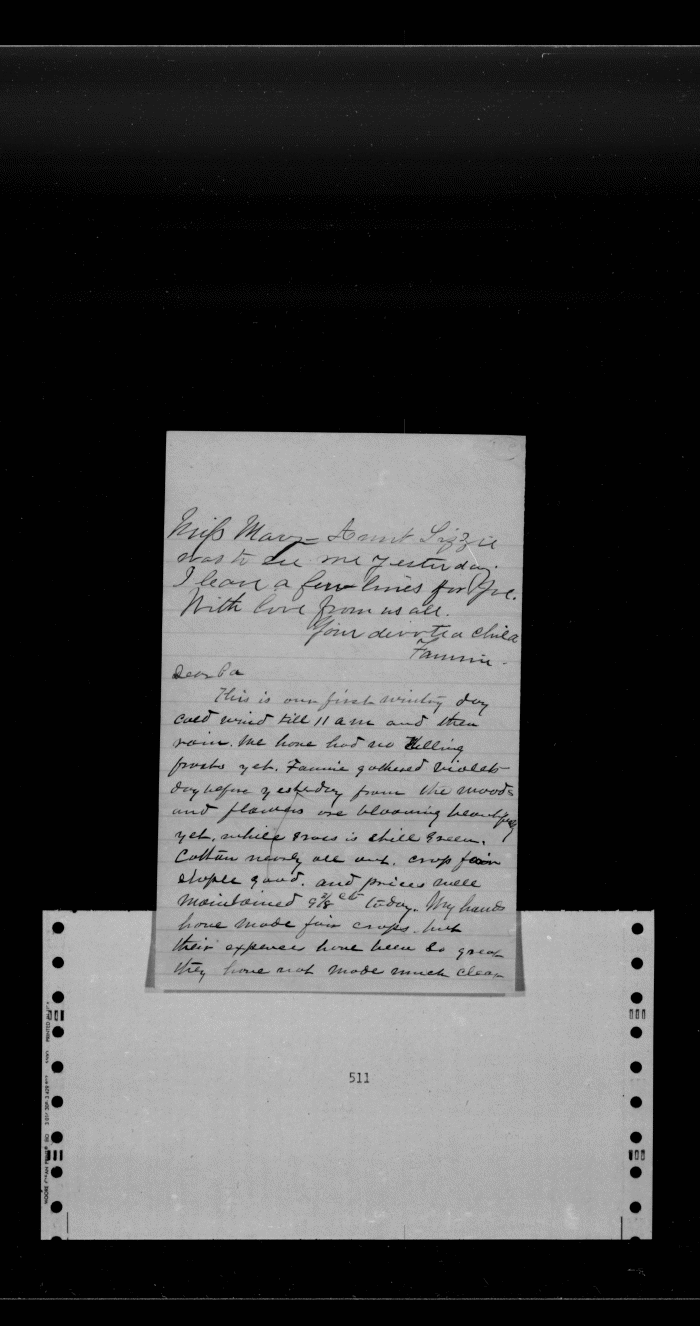 Miss Mary - Aunt Lizzie
was to see me yesterday.
I leave a few lines for Joe.
With love from us all.
Your devoted child
Fannie.
Dear Pa
This is our first wintry day
cold wind till 11 am and then
rain. We have had no killing
frosts yet. Fannie gathered violets
day before yesterday from the woods
and flowers are blooming beautifully
yet, while grass is still green.
Cotton nearly all out. crop fair
staple good. and prices well
maintained 9 3/8 cts today. My hands
have made fair crops. but
their expenses have been so great
they have not made much clear
511